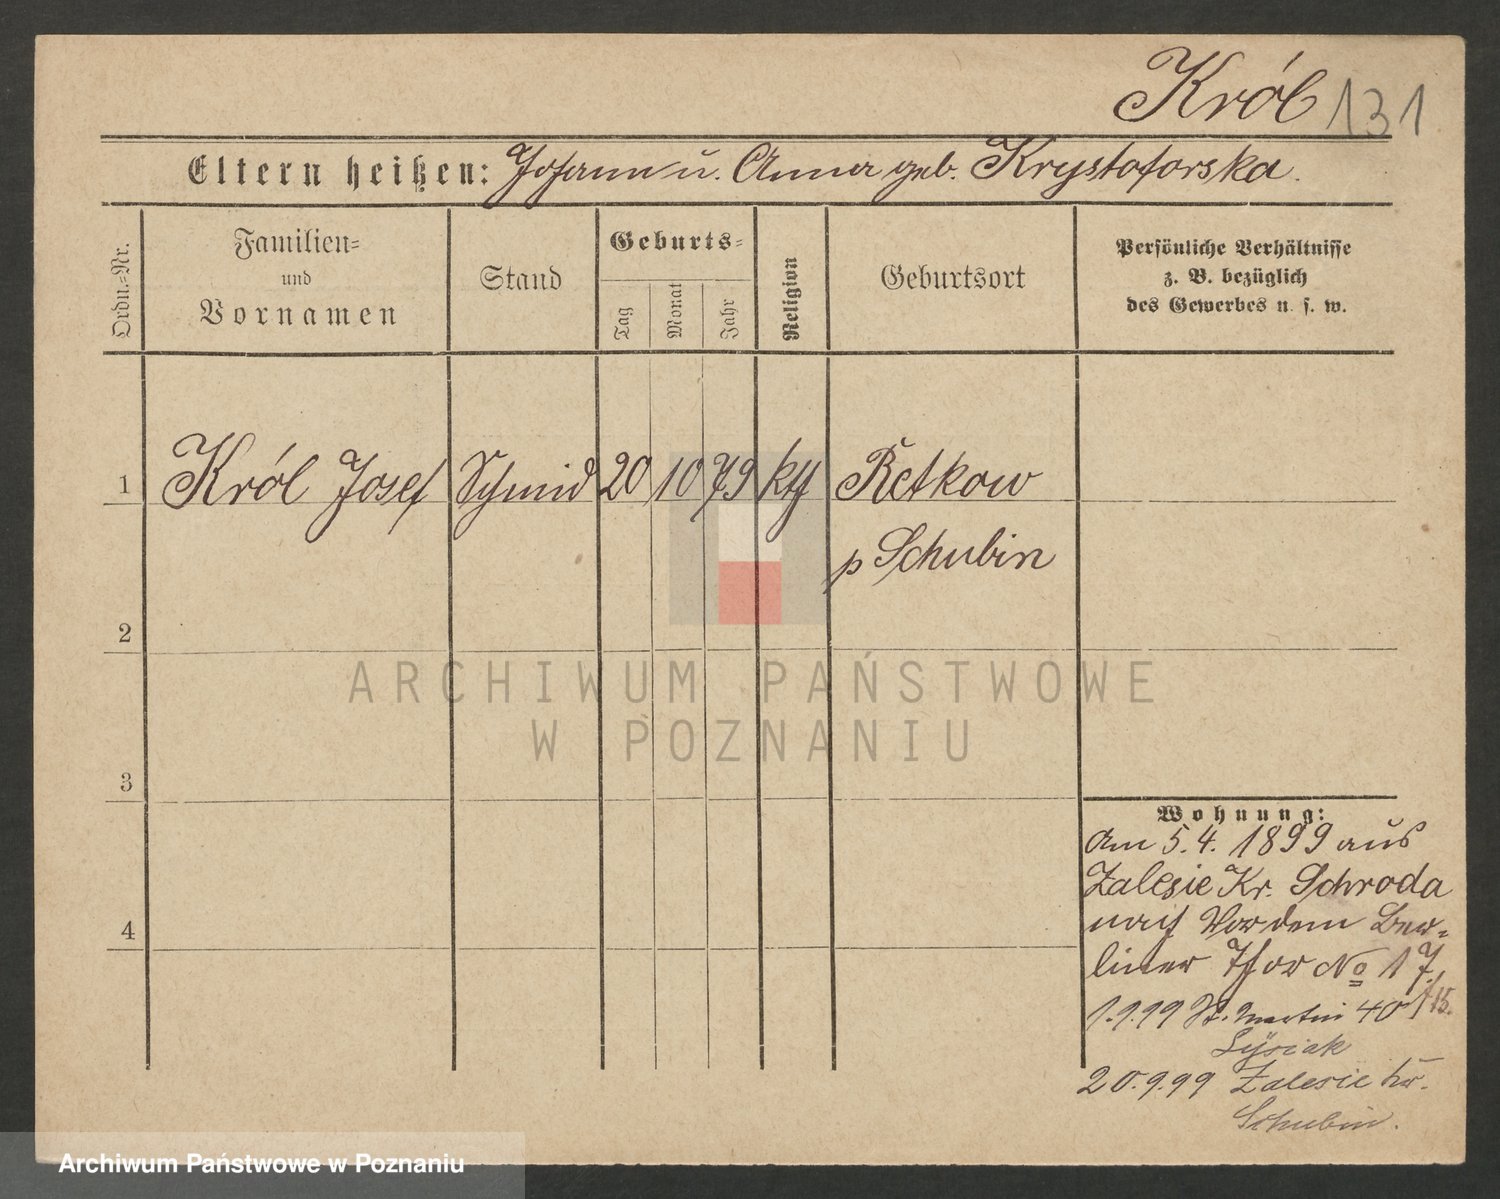 Król 131
Eltern heißen: Johann u. Anna geb. Krystoforska.
Ordn.-Nr.
Familien-
und
Vornamen
Stand
Geburts-
Tag
Monat
Jahr
Religion
Geburtsort
Persönliche Verhältnisse
z. B. bezüglich
des Gewerbes u. s. w.
1 Król Josef Schmid 20 10 79 kth Retkow
p Schubin
2
3
4
Wohnung:
Am 5.4. 1899 aus
Zalesie Kr. Schroda
nach Vor dem Ber-
liner Thor No 17
1.9.99 St. Martin 40
Lysiak
20.9.99 Zalesie Kr.
Schubin.
ARCHIWUM PAŃSTWOWE
W POZNANIU
Archiwum Państwowe w Poznaniu